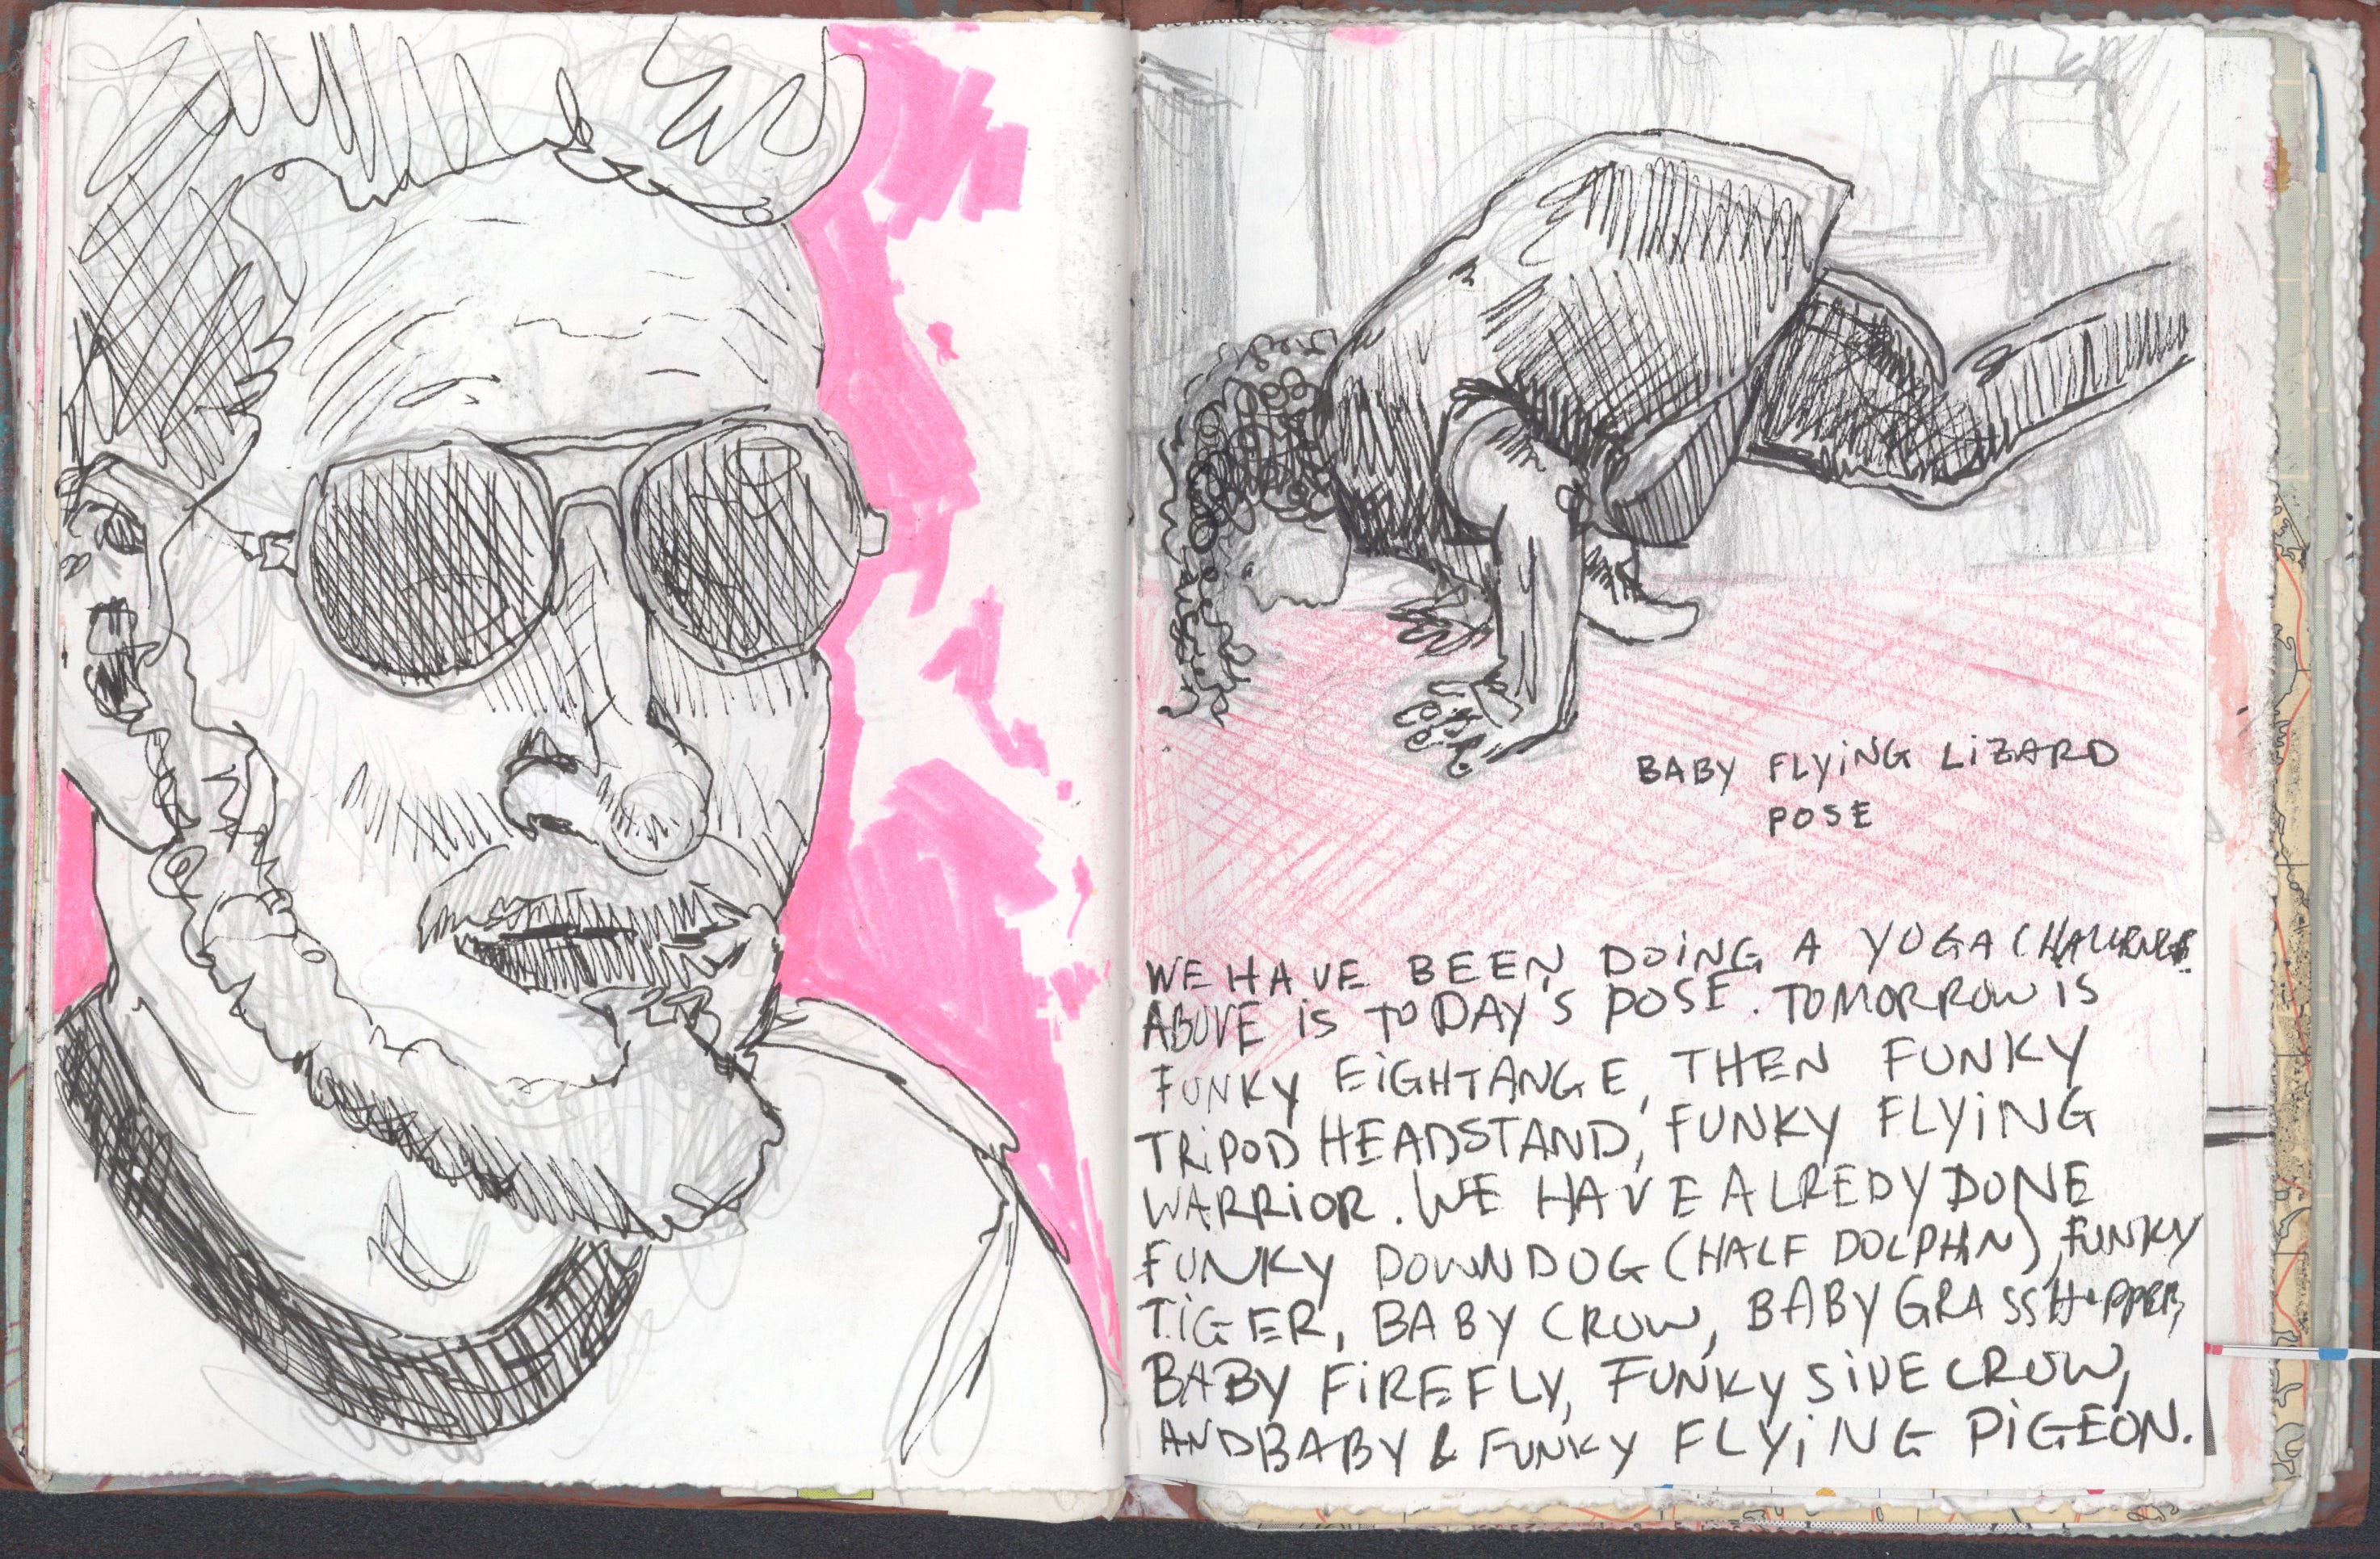 BABY FLYING LIZARD
POSE
WE HAVE BEEN DOING A YOGA CHALLENGE.
ABOVE IS TODAY'S POSE. TOMORROW IS
FUNKY EIGHTANGE, THEN FUNKY
TRIPOD HEADSTAND, FUNKY FLYING
WARRIOR. WE HAVE ALREDY DONE
FUNKY DOWNDOG (HALF DOLPHIN), FUNKY
TIGER, BABY CROW, BABY GRASSHOPPER,
BABY FIREFLY, FUNKY SIDE CROW,
AND BABY & FUNKY FLYING PIGEON.